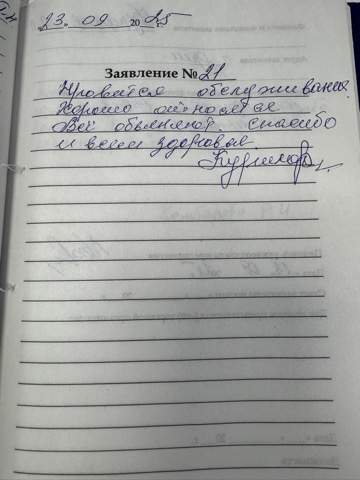 23. 09 2025
Заявление № 21
Нравится обслуживание
Хорошо относятся
Всё объясняют. спасибо
и всем здоровья.